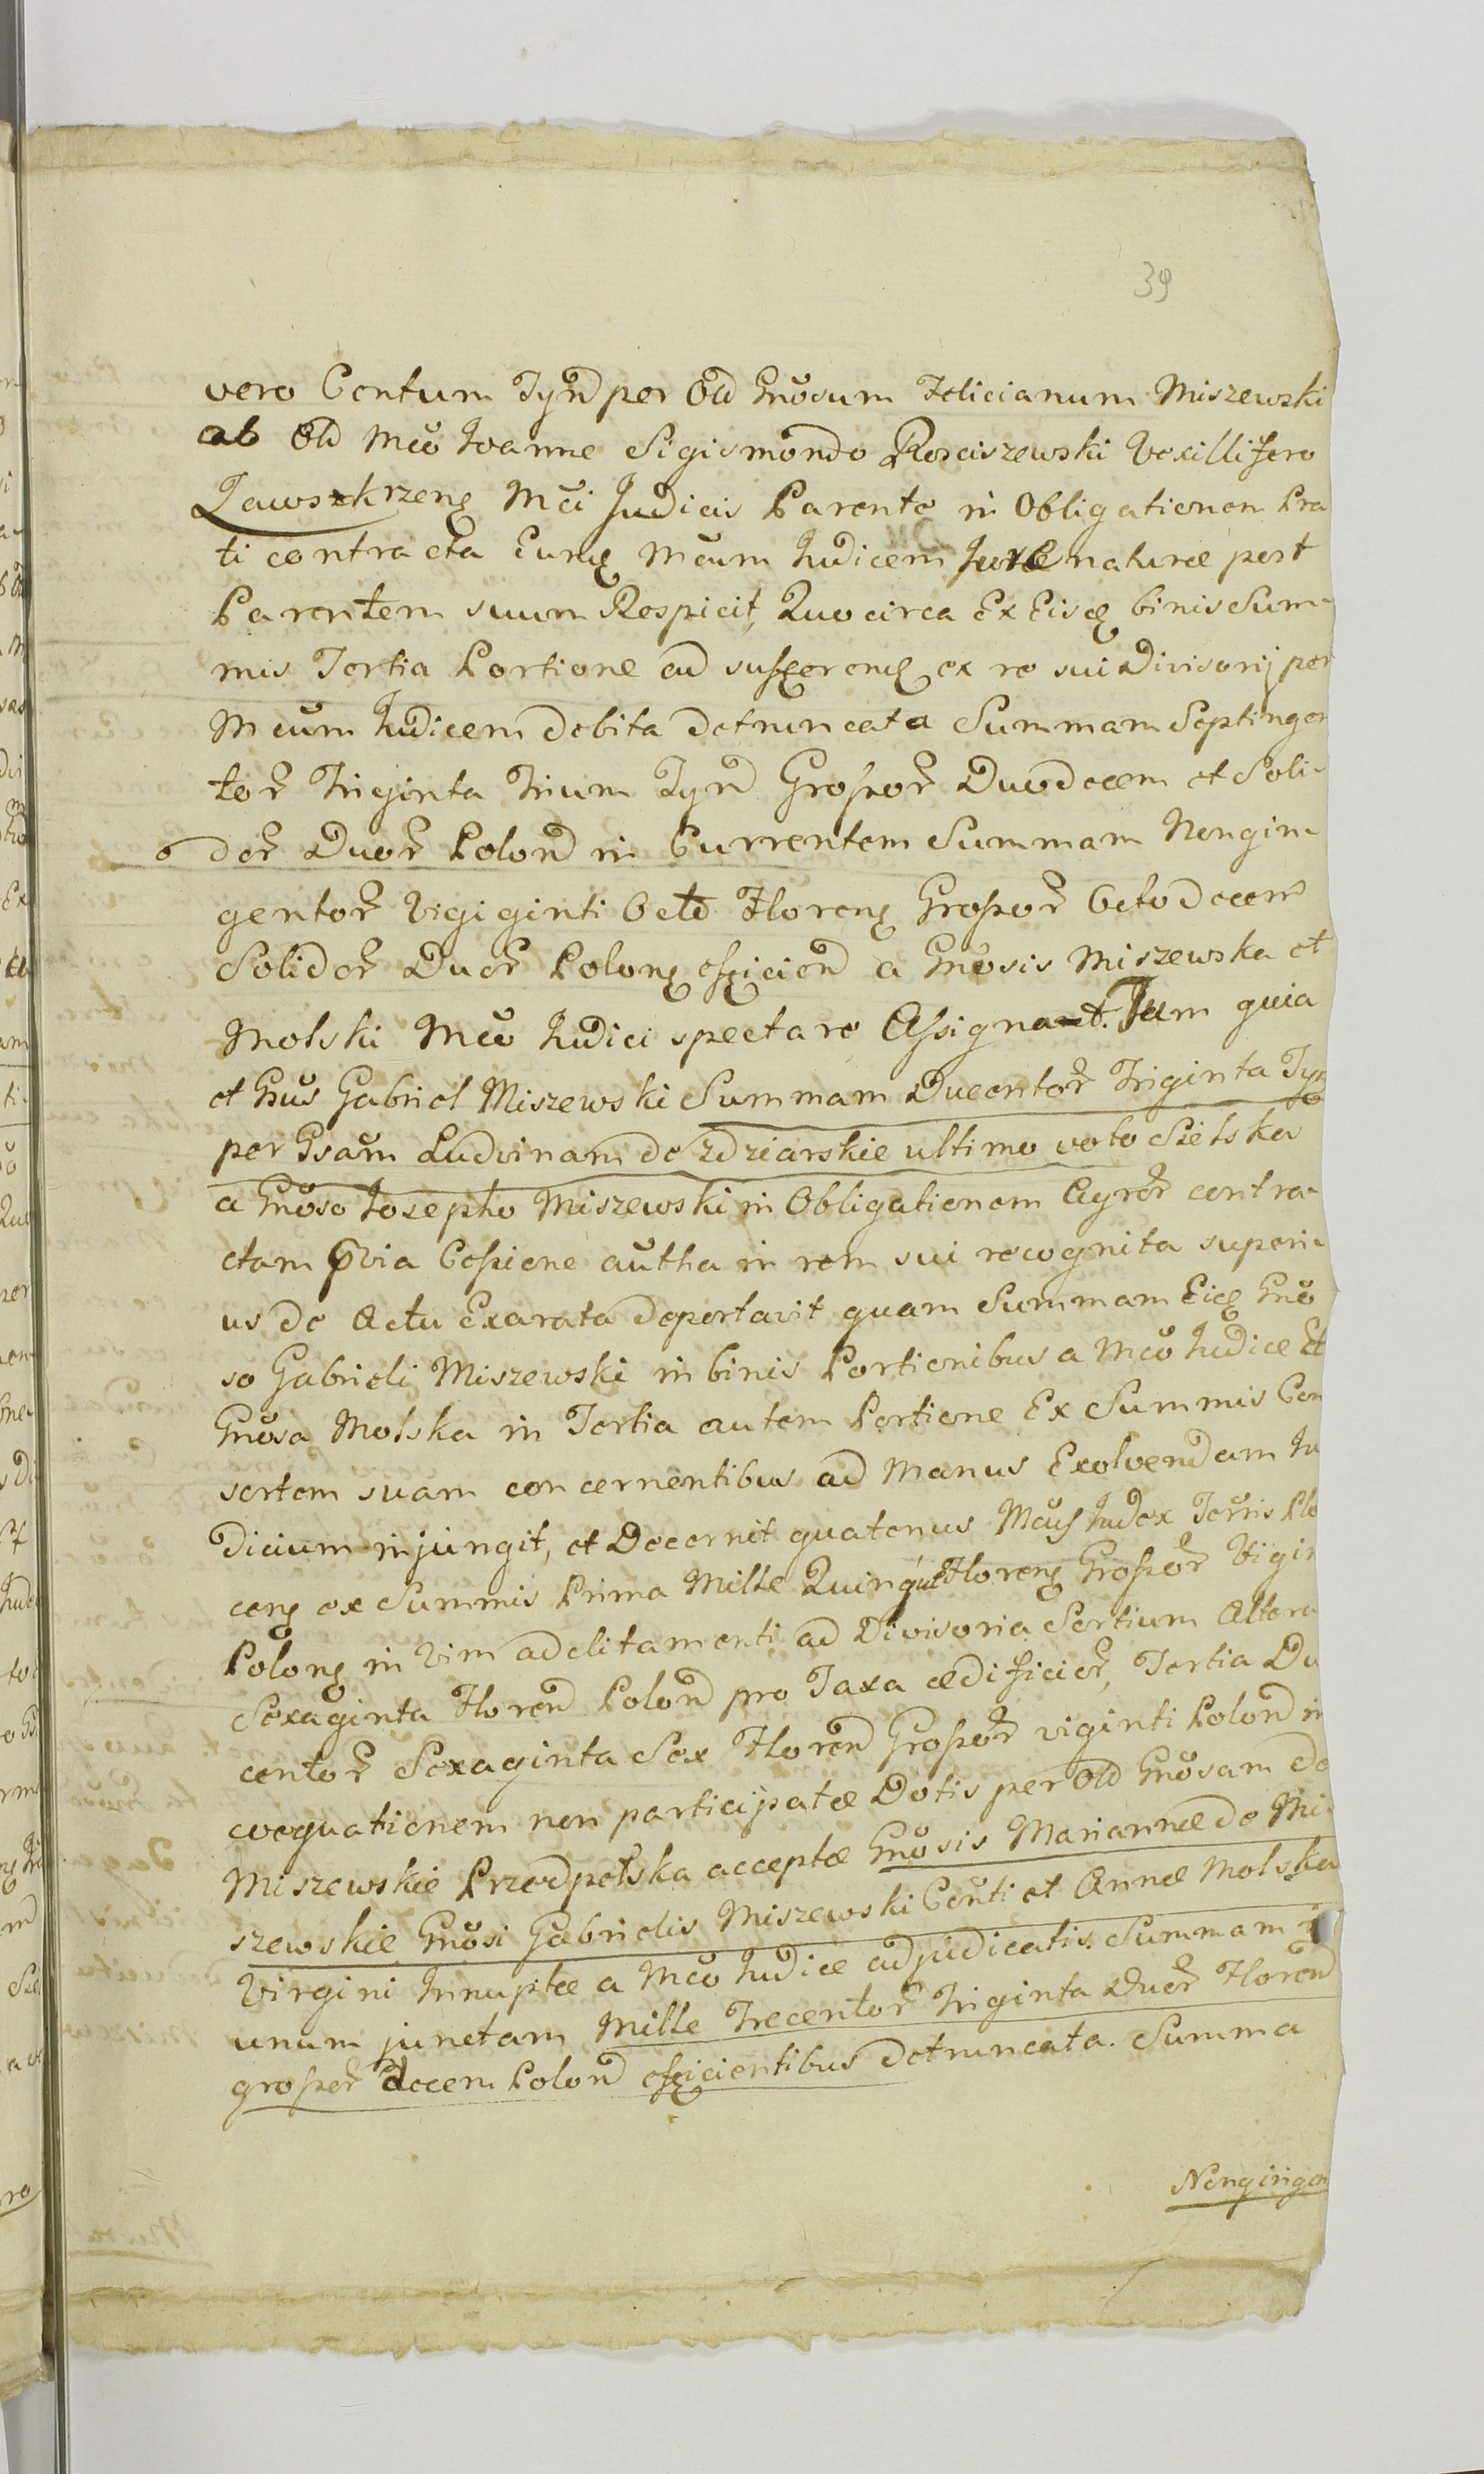 39
vero Centum Tynd per Old Gnõsum Felicianum Miszewski
ab Old Mcõ Joanne Sigismondo Rosciszewski Vexillifero
Zawszkrzenę Mci Judicis Parente in Obligationem Pra
ti contracta Eumę Mcum Judicem Jure naturæ post
Parentem suum Respicit, Quocirca Ex Eisę binis Sum-
mis Tertia Portione ad sufferenę ex re sui Divisorij per
Mcum Judicem debita detruncata Summam Septingen
tor̃ Triginta Trium Tynd Grossor̃ Duodecem et Soli-
dor̃ Duor̃ Polond in Currentem Summam Nongin-
gentor̃ Vigiginti Octo Florenę Grossor̃ Octodecem
Solidor̃ Duor̃ Polonę efficiend a Gnõsis Miszewska et
Molski Mcõ Judici spectare Assignat. Tum quia
et Gnus Gabriel Miszewski Summam Ducentor̃ Triginta Tyn
per Gsam Ludvinam de Zdziarskie ultimo voto Sielska
a Gnõso Josepho Miszewski in Obligationem Agror̃ contra-
ctam pvia Cessione autha in rem sui recognita superi-
us de Actu Exarata deportavit quam Summam Eidę Gnõ
so Gabrieli Miszewski in binis Portionibus a Mcõ Judice Et
Gnõsa Molska in Tertia autem Portione Ex Summis Con
sortem suam concernentibus ad Manus Exolvendam Ju
dicium injungit, et Decernit quatenus Mcus Judex Terris Plo
cenę ex Summis Prima Mille Quinque Florenę Grossor̃ Vigin
Polonę in Vim adelitamenti ad Divisoria Sortium Altera
Sexaginta Florend Polond pro Taxa ædificior̃, Tertia Du
centor̃ Sexaginta Sex Florend Grossor̃ viginti Polond in
coequationem non participatæ Dotis per Old Gnõsam de
Miszewskie Przedpelska acceptæ Gnõsis Mariannæ de Mi-
szewskie Gnõsi Gabrielis Miszewski Conti et Annæ Molska
Virgini Innuptæ a Mcõ Judice adjudicatis. Summam
unum junctam Mille Trecentor̃ Triginta Duor̃ Florend
grossor̃ decem Polond efficientibus detruncata. Summa
Nongingen